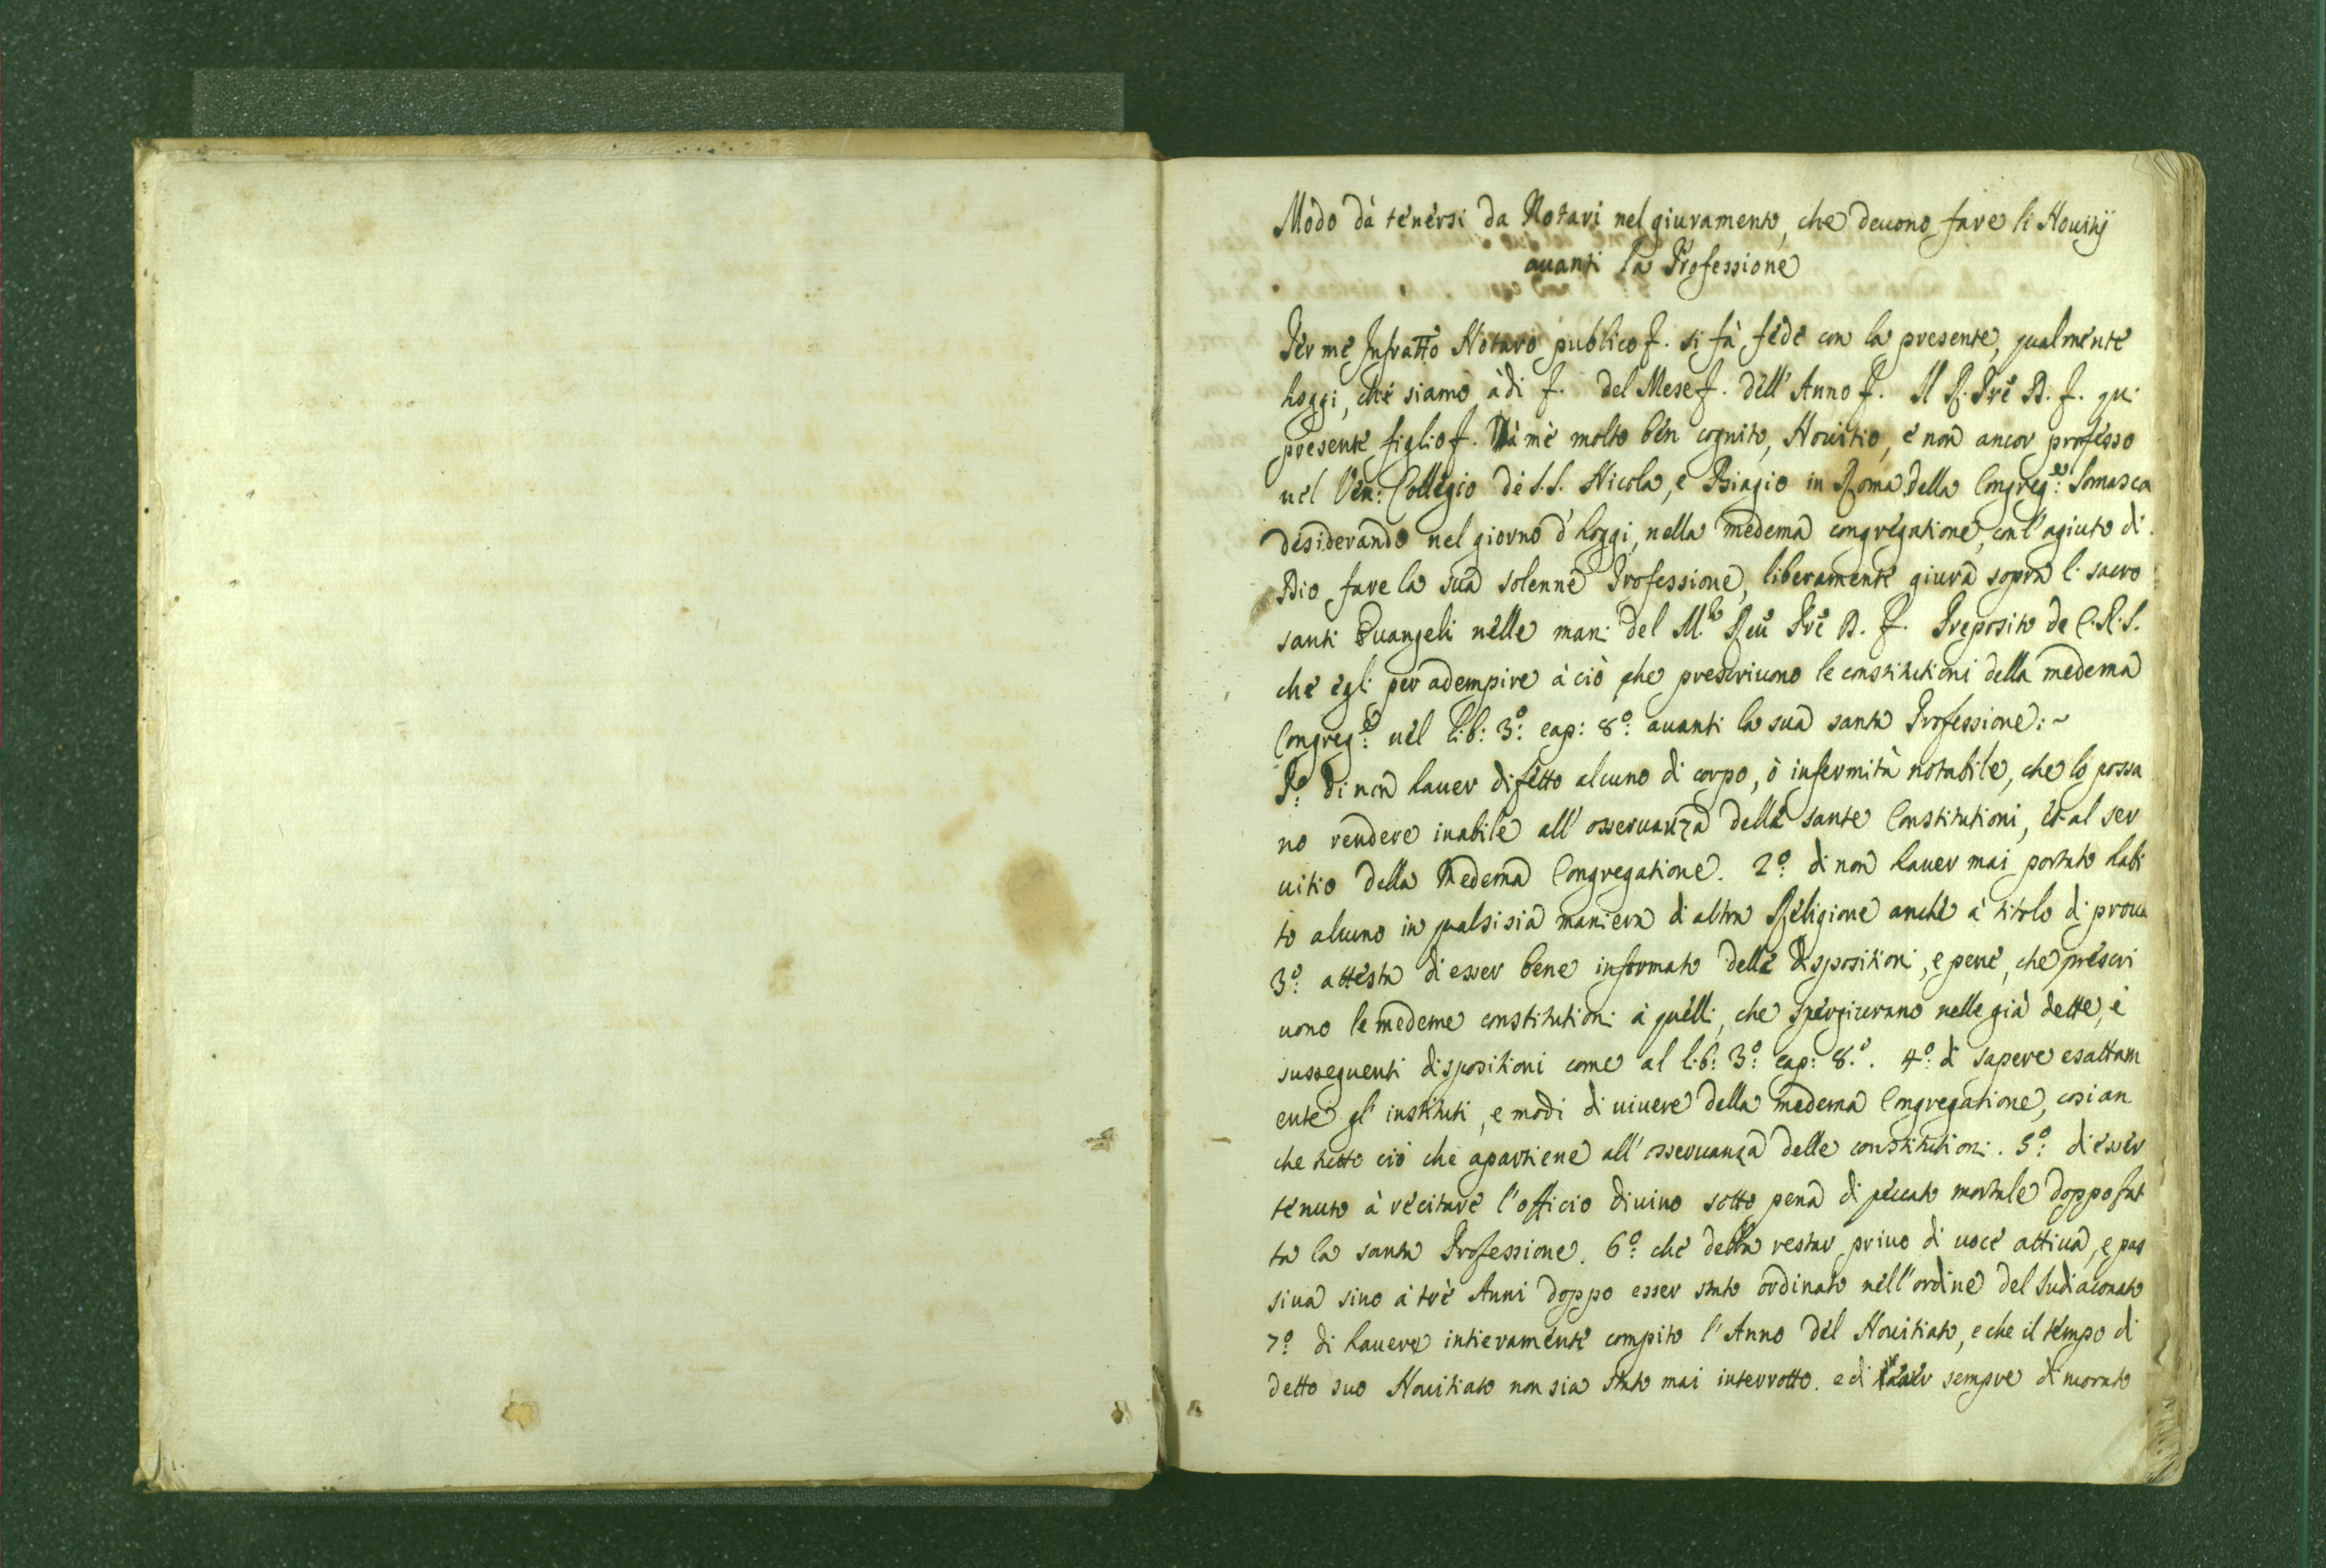 Modo dà tenersi da Notari nel giuramento, che deuono fare li Nouitij
auanti la Professione
Per me Infratto Notaro publico f. si fà fede con la presente, qualmente
hoggi, che siamo àdi f. del Mese f. dell' Anno f. Il R. Prē D. f. qui
presente figlio f. Dà mè molto ben cognito, Nouitio, e non ancor professo
nel Ven: Collegio de S.S. Nicola, e Biagio in Roma della Congreg.e: Somasca
desiderando nel giorno d'hoggi, nella medema congregatione, con l'agiuto di
Dio fare la sua solenne Professione, liberamente giura sopra li sacro
santi Euangeli nelle mani del M.to Reū Prē D. f. Preposito de C.R.S.
che egli per adempire à ciò che prescriuono le constitutioni della medema
Congreg.e: nel lib: 3.o: cap: 8.o: auanti la sua santa Professione: ~
P.o: di non hauer difetto alcuno di corpo, ò infermità notabile, che lo possa
no rendere inabile all' osseruanza delle sante Constitutioni, et al ser
uitio della Medema Congregatione. 2.o: di non hauer mai portato habi
to alcuno in qualsisia maniera di altra Religione anche à titolo di proua
3.o: attesta di esser bene informato delle dispositioni, e pene, che prescri
uono le medeme constitutioni à quelli, che spergiurano nelle già dette, e
susseguenti dispositioni come al lib: 3.o: cap: 8.o. 4.o: di sapere esattam
ente gl' instituti, e modi di uiuere della medema Congregatione, cosi an
che tutto ciò che apartiene all' osseruanza delle constitutioni. 5.o: di esser
tenuto à recitare l'officio diuino sotto pena di peccato mortale doppo fat
ta la santa Professione. 6.o: che debba restar priuo di uoce attiua, e pas
siua sino à trè Anni doppo esser stato ordinato nell'ordine del Sudiaconato
7.o: di hauere intieramente compito l'Anno del Nouitiato, e che il tempo di
detto suo Nouitiato non sia stato mai interrotto. e di sempre dimorato